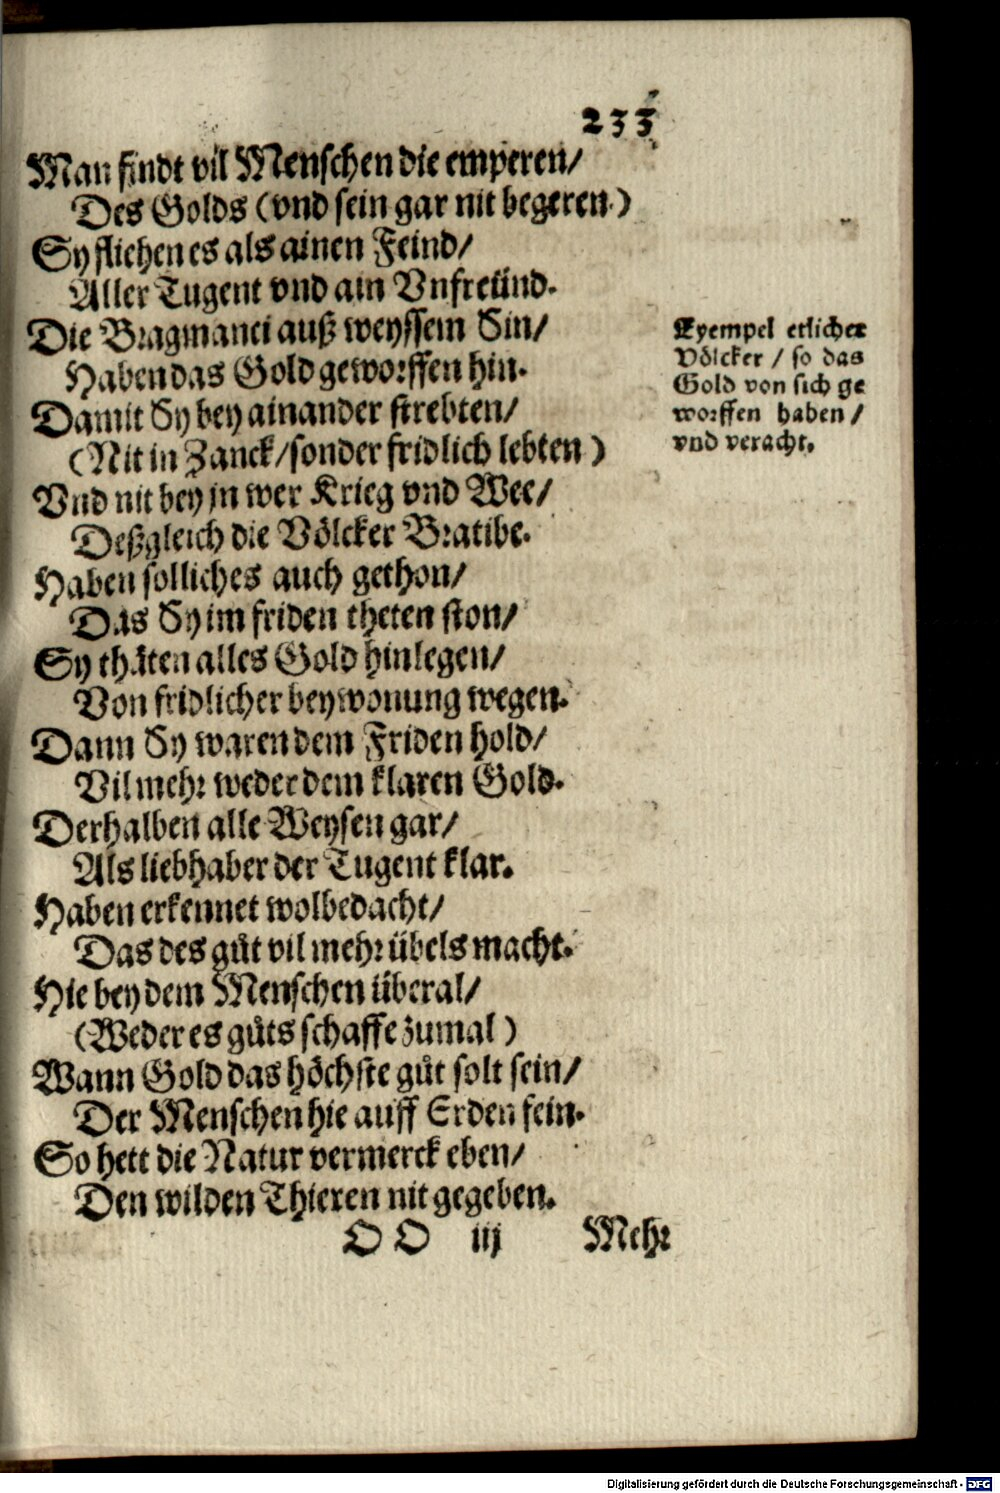 233
Man findt vil Menschen die emperen/
Des Golds (vnd sein gar nit begeren.)
Sy fliehen es als ainen Feind/
Aller Tugent vnd ain Vnfreünd.
Die Bragmanei auß weyssem Sin/
Haben das Gold geworffen hin.
Damit Sy bey ainander strebten/
(Nit in Zanck/sonder fridlich lebten)
Vnd nit bey jn wer Krieg vnd Wee/
Deßgleich die Völcker Bratibe.
Haben solliches auch gethon/
Das Sy im friden theten ston/
Sy thäten alles Gold hinlegen/
Von fridlicher beywonung wegen.
Dann Sy waren dem Friden hold/
Vil mehr weder dem klaren Gold.
Derhalben alle Weysen gar/
Als liebhaber der Tugent klar.
Haben erkennet wolbedacht/
Das des gůt vil mehr übels macht.
Hie bey dem Menschen überal/
(Weder es gůts schaffe zumal)
Wann Gold das höchste gůt solt sein/
Der Menschen hie auff Erden fein.
So hett die Natur vermerck eben/
Den wilden Thieren nit gegeben.
O O iij Mehr
Exempel etlicher
Völcker / so das
Gold von sich ge
worffen haben /
vnd veracht.
Digitalisierung gefördert durch die Deutsche Forschungsgemeinschaft - DFG